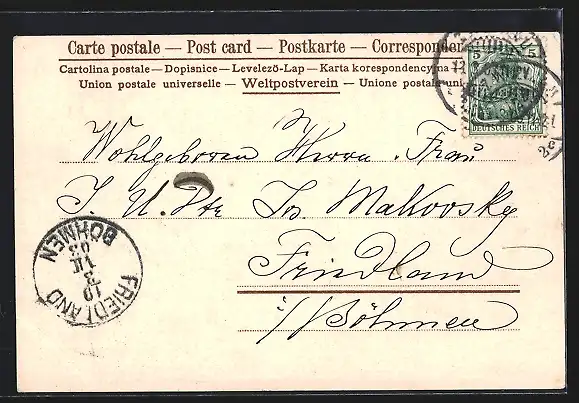 Carte postale — Post card — Postkarte — Correspon
Cartolina postale — Dopisnice — Levelező-Lap — Karta korespondencyjna
Union postale universelle — Weltpostverein — Unione postale uni
5 5
DEUTSCHES REICH
Wohlgeboren Herrn. Frau
J. U. Dr Jos Makovsky
Friedland
i/Böhmen
FRIEDLAND
BÖHMEN
10
3
VII
03